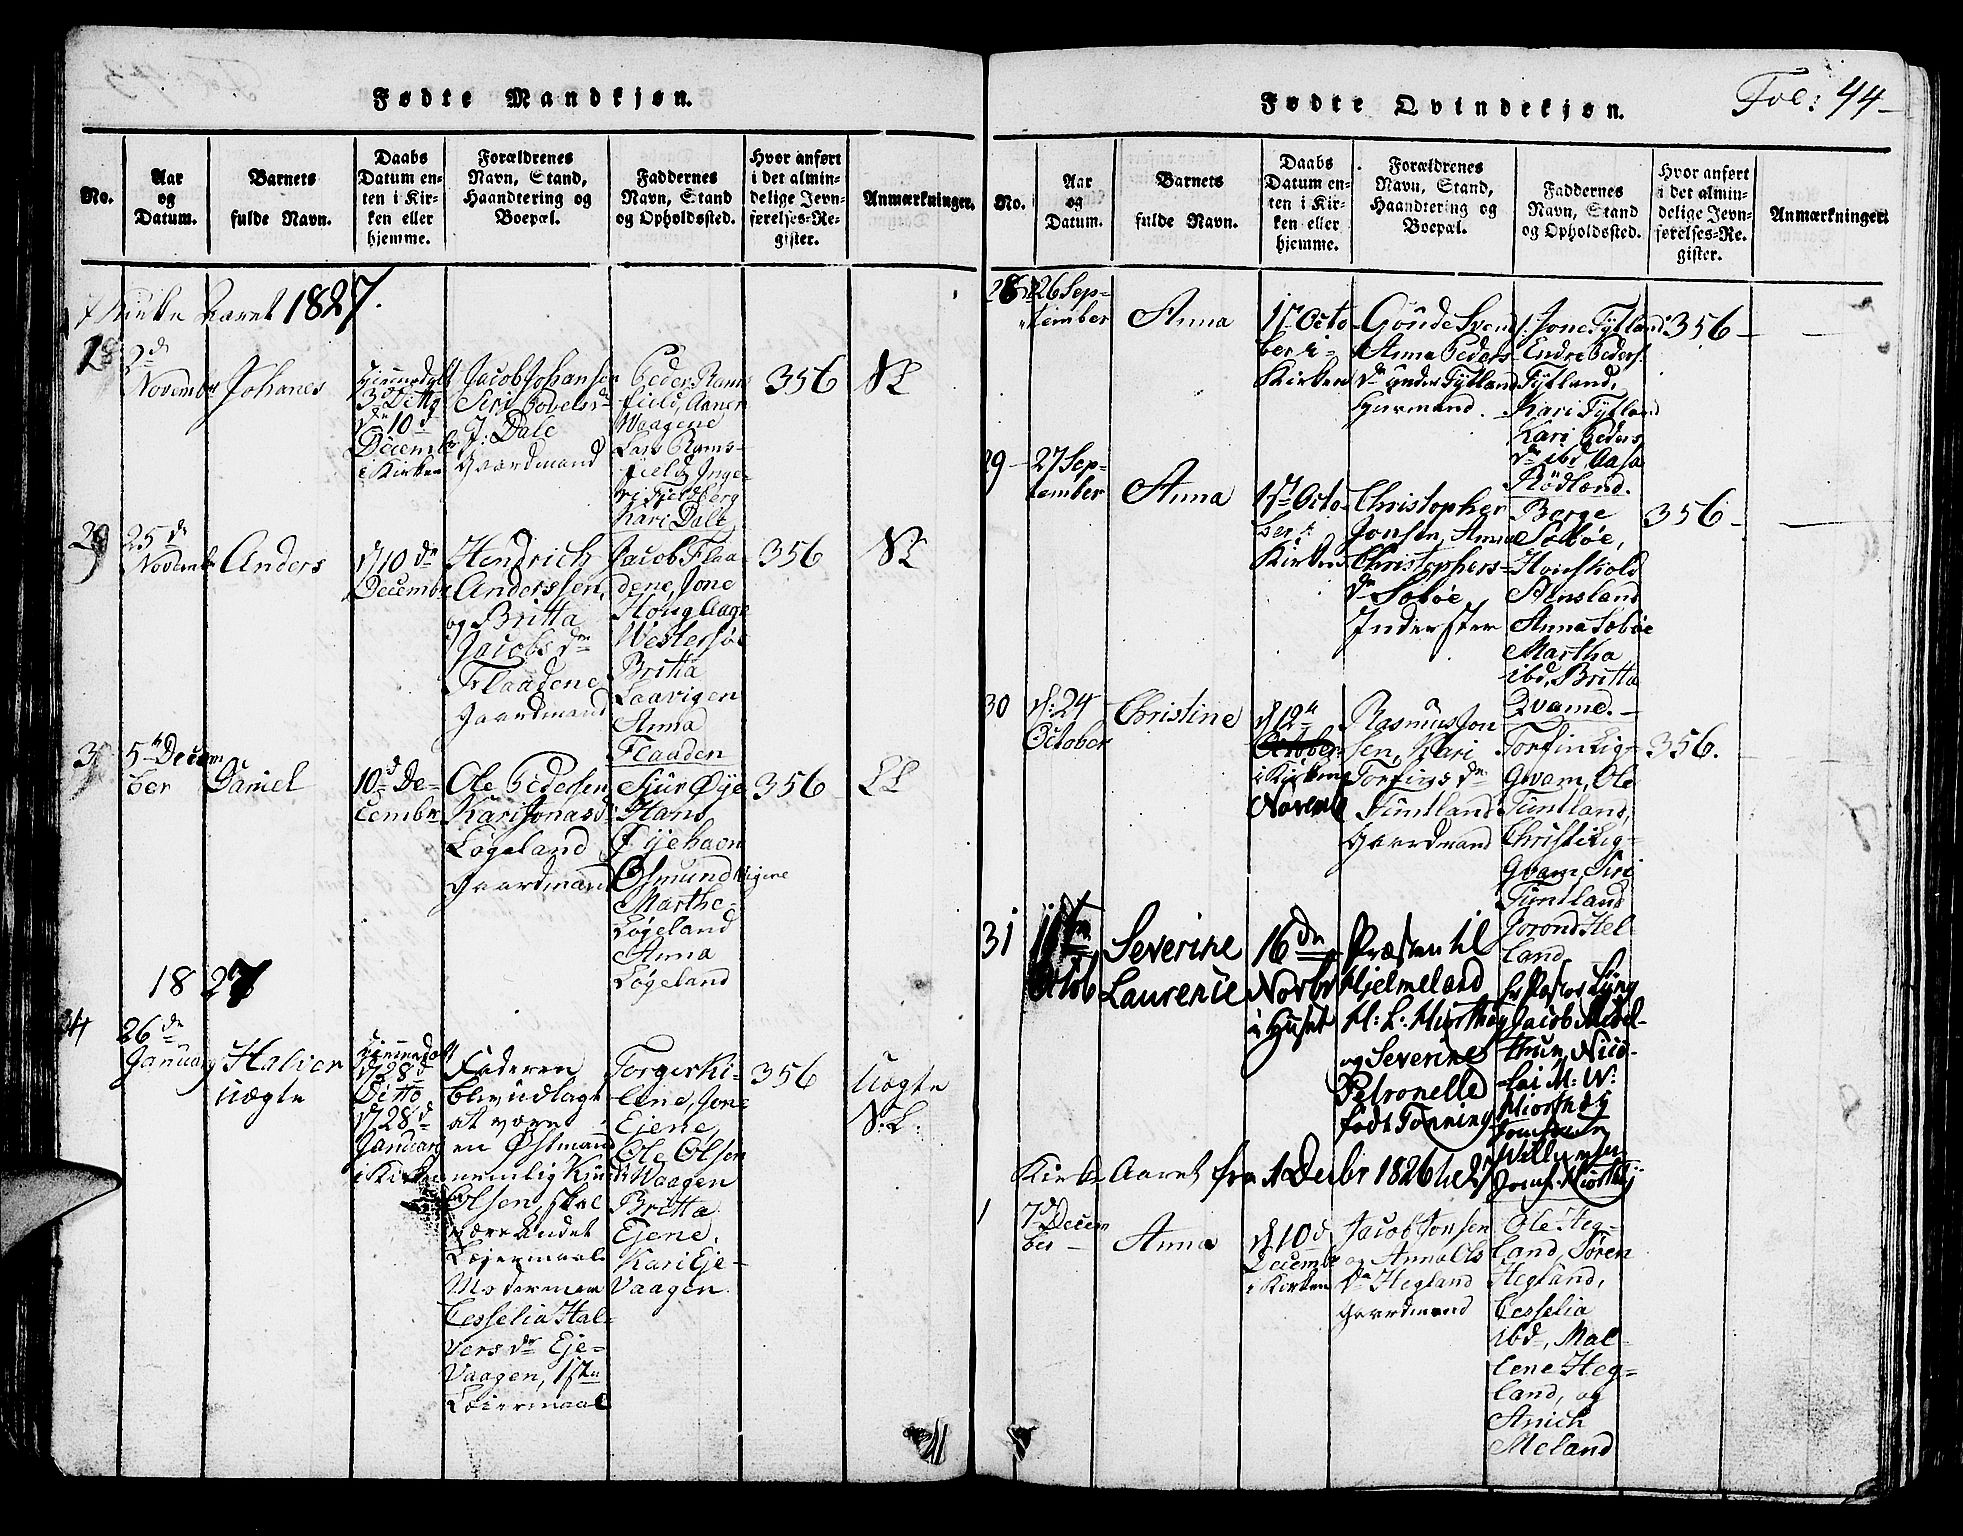 Fol: 44
Fødte Mandkjøn.
No.
Aar
og
Datum.
Barnets
fulde Navn.
Daabs
Datum en-
ten i Kir-
ken eller
hjemme.
Forældrenes
Navn, Stand,
Haandtering og
Boepæl.
Faddernes
Navn, Stand
og Opholdssted.
Hvor anført
i det almin-
delige Jevn-
førelses-Re-
gister.
Anmærkninger.
Kirke Aaret 1827.
2d
November
Johanes
Hiemmedøbt
3d Dito
d 10d
Decembr
i Kirken
Jacob Johansen
Siri Povelsd
Dale
Gaardmand
Peder Rams-
field, Aanen
Waagene
Lars Rams-
field
Kari Dale
356
29
25de
Novembr
Anders
d 10de
Decembr
Hendrich
Anderssen,
og Britta
Jacobsdr
Flaadene
Gaardmand
Jacob Flaa-
dene, Jone
Houg Aage
Westersøe
Britta
Laavigen
Anna
Flaaden
356
5te Decem-
ber
Daniel
10d De-
cembr
Ole Pedersen
Kari Jonasd
Løgeland
Gaardmand
Siur Øye
Hans
Øyehavn
Osmund
Marthe
Løgeland
Anna
Løgeland
356
1827
26de
January
Halvor
Uægte
Hiemmedøbt
d 28d
Ditto
d 28d
January
i Kirken
Faderen
blev udlagt
at være
en Østmand
nemlig
Olsen, skal
være Andet
Leiermaal
Moderen er
Cesselia Hal-
versdr Eje-
Vaagen, 1ste
Leiermaal
Torger Ki-
lene, Jone
Ejene,
Ole Olsen
Waagen
Britta
Ejene,
Kari Eje-
Vaagen.
356
Uægte
N: L:
Fødte Qvindekjøn.
No.
Aar
og
Datum.
Barnets
fulde Navn.
Daabs
Datum en-
ten i Kir-
ken eller
hjemme.
Forældrenes
Navn, Stand,
Haandtering og
Boepæl.
Faddernes
Navn, Stand
og Opholdssted.
Hvor anført
i det almin-
delige Jevn-
førelses-Re-
gister.
Anmærkninger.
28
26 Sep-
tember
Anna
1st Octo-
ber i
Kirken
Goude Svends.
Anna Peders-
dr Tytland
Huusmand.
Jone Tytland
Endre Peders.
Tytland,
Kari Tytland
Kari Peders
dr ibd, Aasa
Rødland.
356
29
27 Sep-
tember
Anna
Octo-
ber i
Kirken
Christopher
Jonsen, Anna
Christophers-
dr Søbøe
Inderster
Børge
Søbøe,
Houskold
Stensland
Anna Søbøe
Martha
ibd, Britta
Qvame.
356
30
d: 24
October
Christine
d 12te
October
i Kirken
Novemb
Rasmus Jon-
sen, Kari
Torfinsdr
Tuntland
Gaardmand
Torfin Lig-
Qvam, Ole
Tuntland,
Christi Lig-
Qvam, Siri
Tuntland
Jorond Hel-
land
356.
31
11te
Octob
Severine
Laurentie
16de
Novbr
i Huset
Præsten til
Hjelmeland
H: L: Hiorthøy
og Severine
Petronelle
født Tønning
Hr Pastor Lyng
Jacob Midel-
thun, Nico-
lai M: W:
Hiorthøy
Jomfrue
Willumsen
Jomf. Hiorthøy
Kirke Aaret fra 1 Decbr 1826 til 27
1
7d Decem-
ber
Anna
d 10d
Decembr
i Kirken
Jacob Jonsen
og Anna Ols-
dr Hegland
Gaardmand
Ole Heg-
land, Søren
Hegland,
Cesselia
ibd, Mal-
lene Heg-
land, og
Anich
Meland